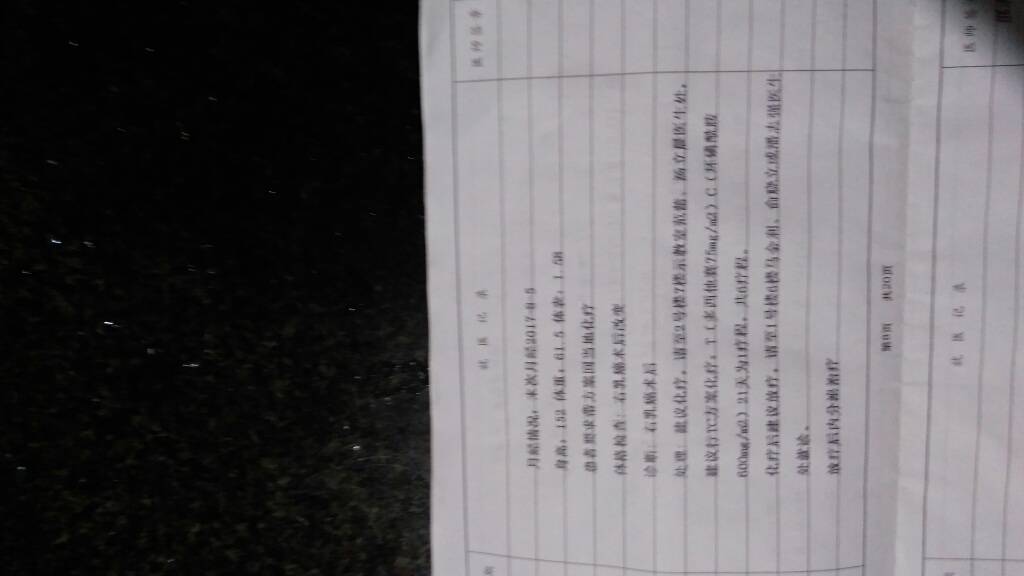 就 医 记 录
医 师 签 章
月经情况：末次月经2017-8-5
身高：152 体重：61.5 体表：1.58
患者要求带方案回当地化疗
体格检查：右乳癌术后改变
诊断：右乳癌术后
处理：建议化疗，请至2号楼7楼示教室
建议行TC方案化疗。T（多西他赛75mg/m2）C（环磷酰胺
600mg/m2）21天为1疗程，共6疗程。
化疗后建议放疗。请至1号楼6楼马金利、俞晓立或潘志强医生
处就诊。
放疗后内分泌治疗
共20页
就 医 记 录
医 师 签